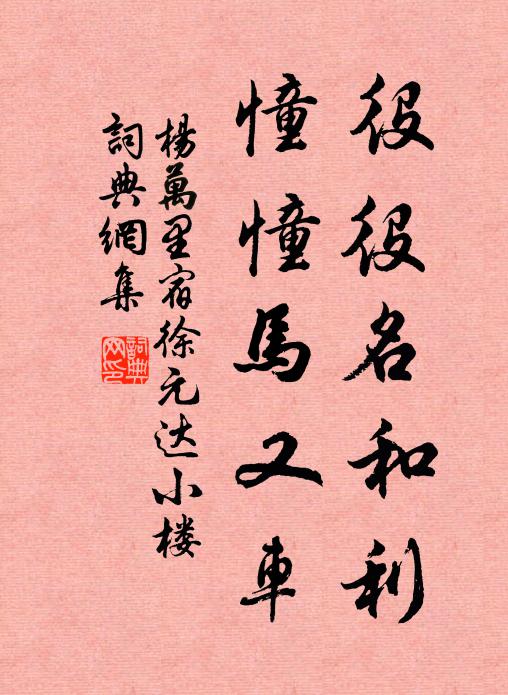 役役名和利
憧憧馬又車
楊萬里宿徐元达小楼
詞典網集
詞典网印